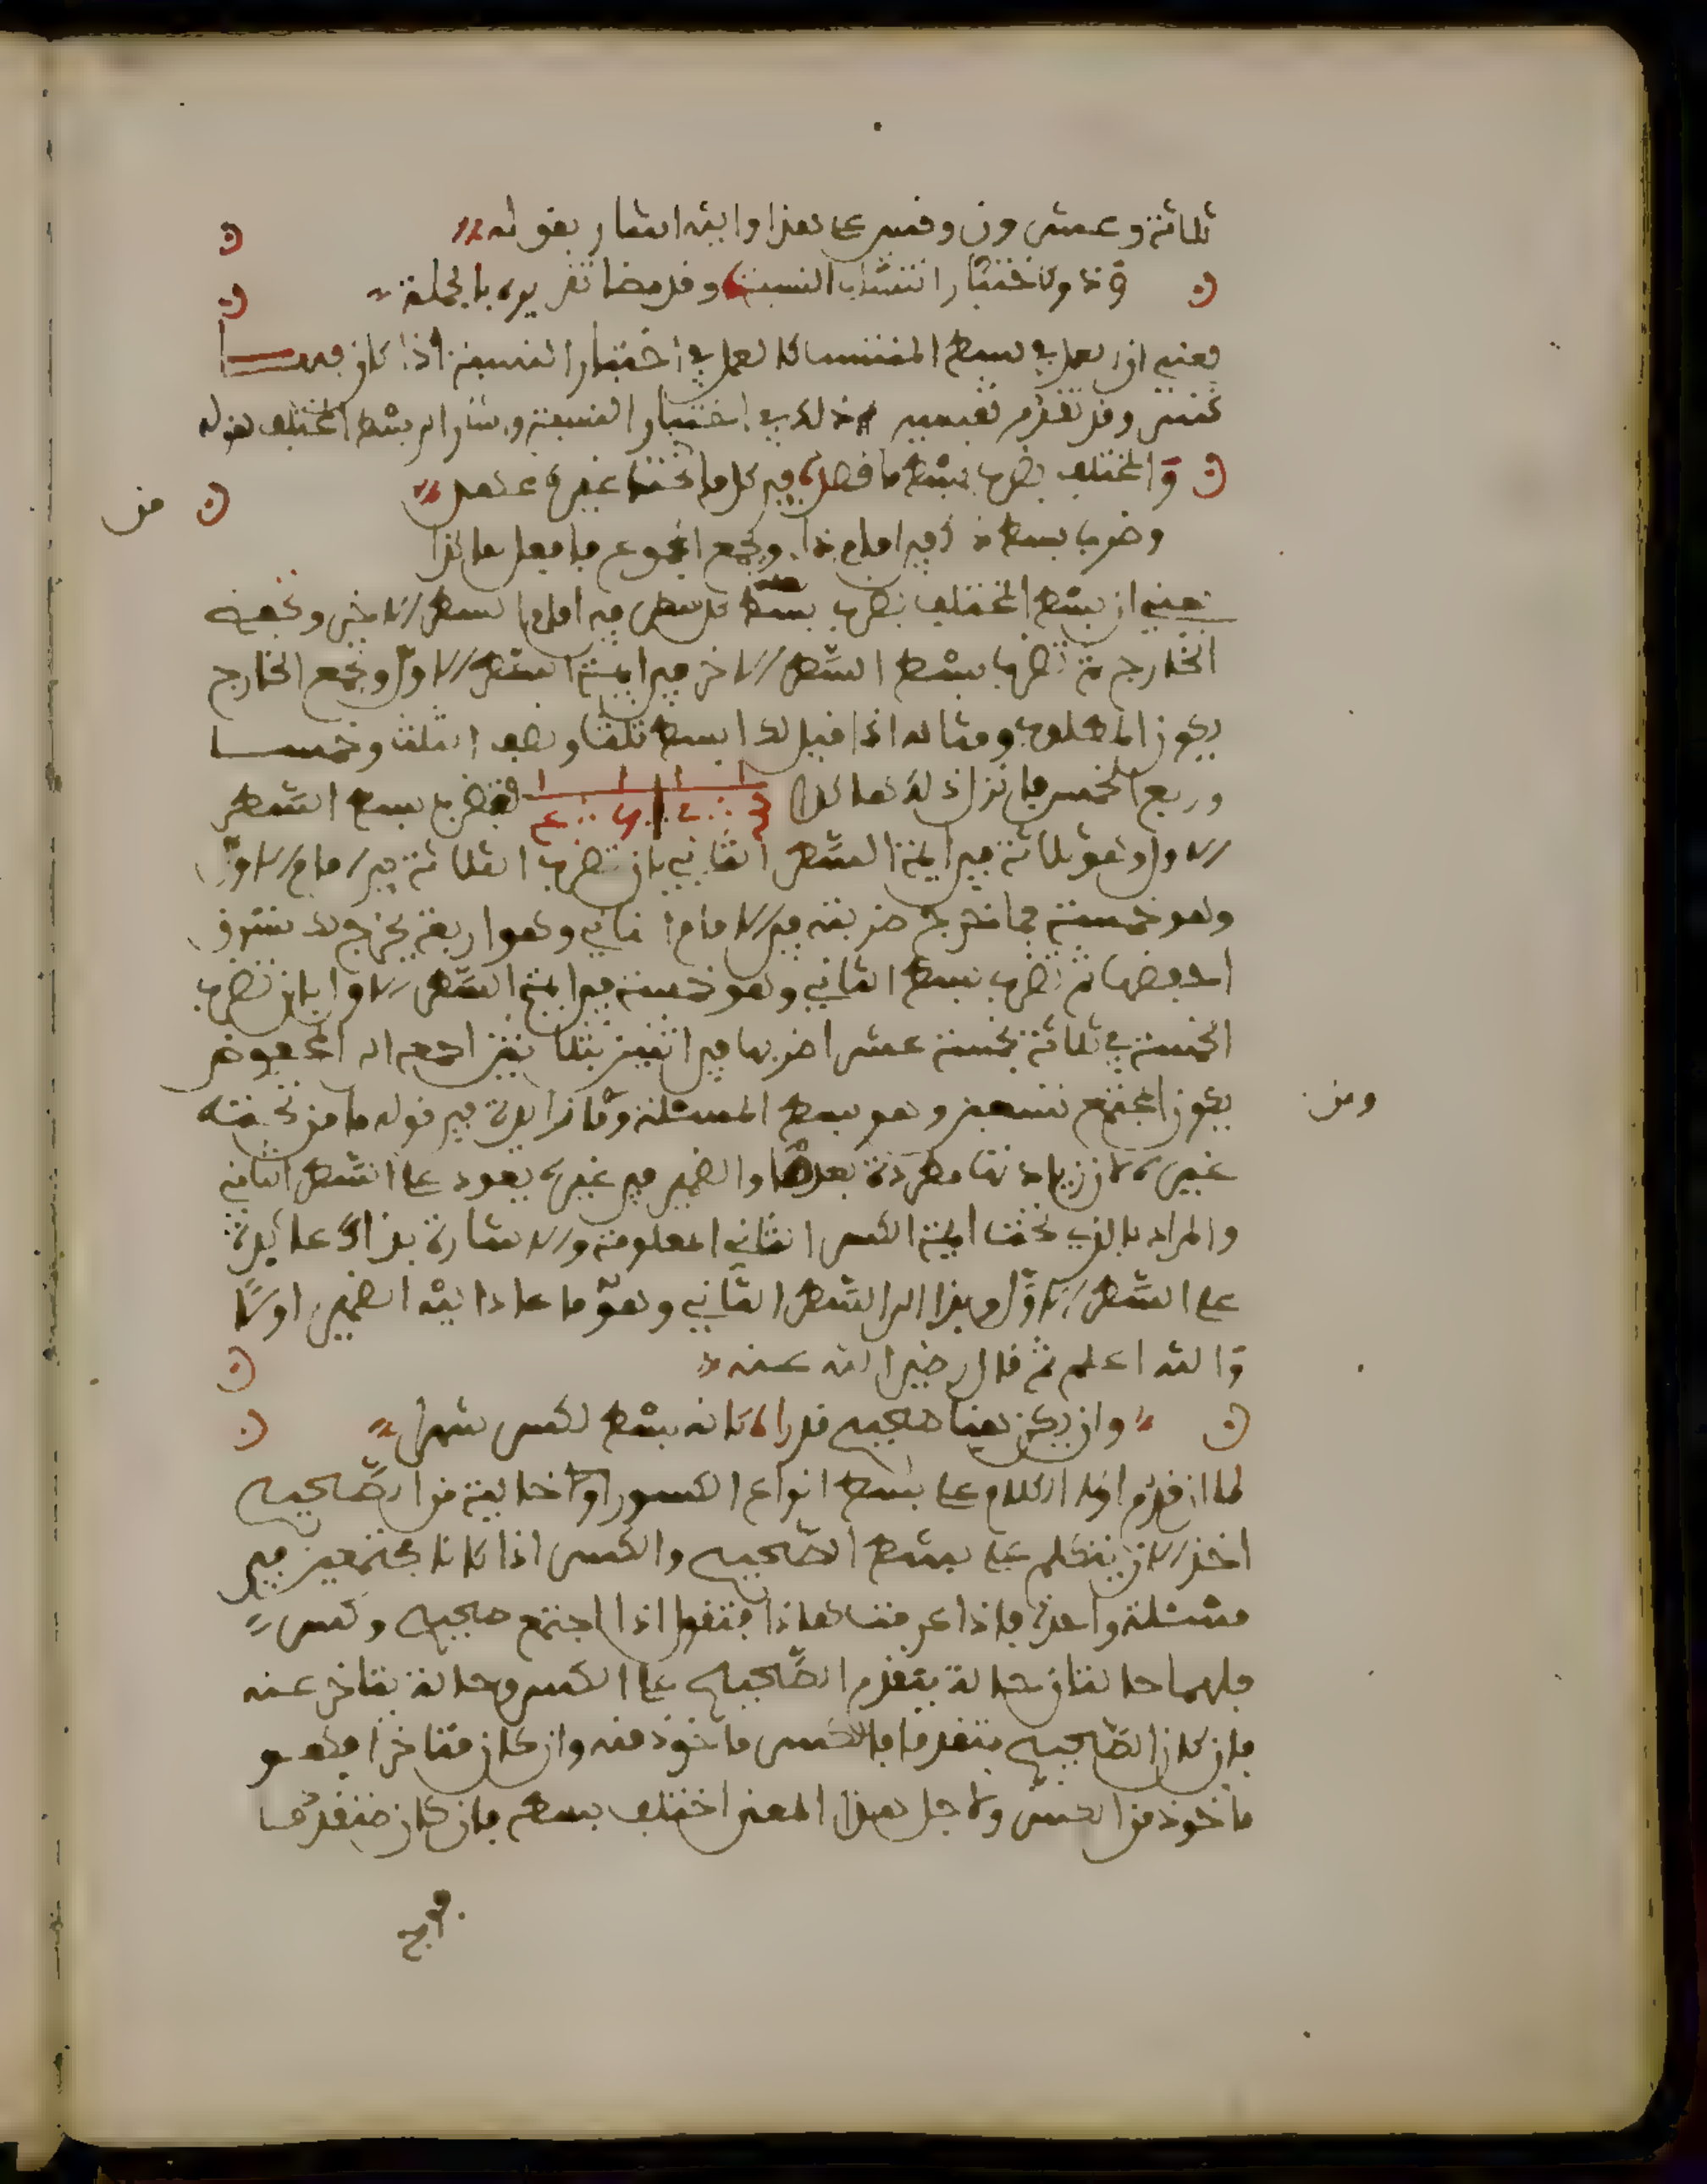 ثلاثة وعشرون وقس على هذا واليه اشار بقوله
وذو اختبار انتساب النسبة وقد مضا تقريره بالجملة
يعني ان العمل في بسط المنتسب كالعمل في اختبار النسبة اذا كان فيها
كسر وقد تقدم تفسير ذلك في اختبار النسبة واشار الى بسط المختلف بقوله
والمختلف يضرب بسط ما فصل في كل ما تحت غيره عهد
من
وضرب بسط ذا في امام ذا وتجمع المجموع فافعل هاكذا
يعني ان بسط المختلف يضرب بسط كل سطر في امام بسط الاخر وتحفظ
الخارج ثم تضرب بسط السطر الاخر في ايمة السطر الاول وتجمع الخارج
يكون المطلوب ومثاله اذا قيل لك ابسط ثلثا ونصف الثلث وخمسا
وربع الخمس فانزل ذلك هاكذا فتضرب بسط السطر
الاول وهو ثلاثة في ايمة السطر الثاني بان تضرب الثلاثة في امام الاول
وهو خمسة فما خرج ضربته في الامام الثاني وهو اربعة يخرج لك ستون
احفضها ثم تضرب بسط الثاني وهو خمسة في ايمة السطر الاول بان تضرب
الخمسة في ثلاثة بخمسة عشر اضربها في اثنين بثلاثين اجمعه الى المحفوض
يكون المجتمع تسعين وهو بسط المسئلة وما زايدة في قوله ما من تحته
ومن
غيره لان زيادتها مطردة بعد والضمير في غيره يعود على السطر الثاني
والمراد بالذي تحت ايمة الكسر الثاني المعلومة والاشارة بذاك عايدة
على السطر الاول وبذا الى السطر الثاني وهو ما عاد اليه الضمير اولا
والله اعلم ثم قال رضي الله عنه
وان يكن هنا صحيح قدرا كانه بسط لكسر شهرا
لما ان قدم اولا الكلام على بسط انواع الكسور اولا خالية من الصحيح
اخذ الان يتكلم على بسط الصحيح والكسر اذا كانا مجتمعين في
مسئلة واحدة فاذا عرفت هاذا فتقول اذا اجتمع صحيح وكسر
فلهما حالتان حالة يتقدم الصحيح على الكسر وحالة يتاخر عنه
فان كان الصحيح متقدما فالكسر ماخوذ منه وان كان متاخرا فهو
ماخوذ من الكسر ولاجل هذا المعنى اختلف بسطه فان كان متقدما